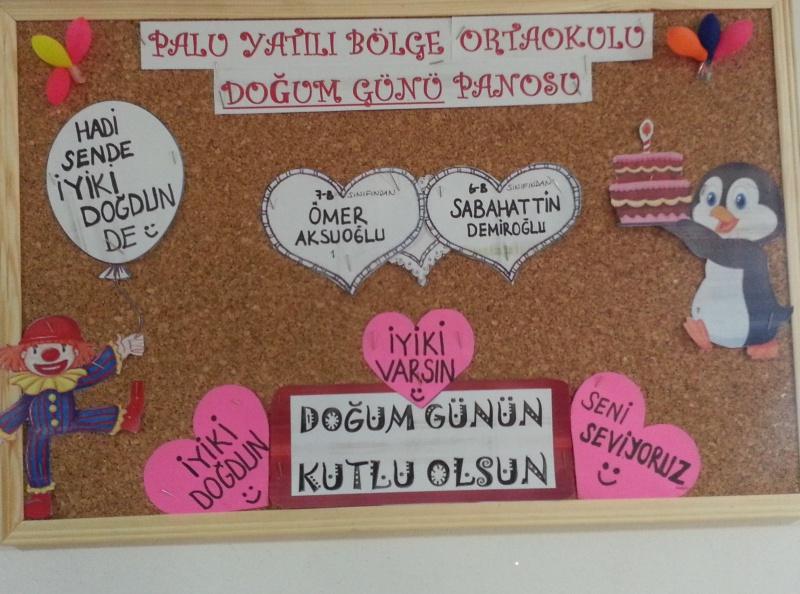 PALU YATILI BÖLGE ORTAOKULU
DOĞUM GÜNÜ PANOSU
HADİ
SENDE
İYİKİ
DOĞDUN
DE
7-B SINIFINDAN
ÖMER
AKSUOĞLU
6-B SINIFINDAN
SABAHATTİN
DEMİROĞLU
İYİKİ
VARSIN
İYİKİ
DOĞDUN
DOĞUM GÜNÜN
KUTLU OLSUN
SENİ
SEVİYORUZ